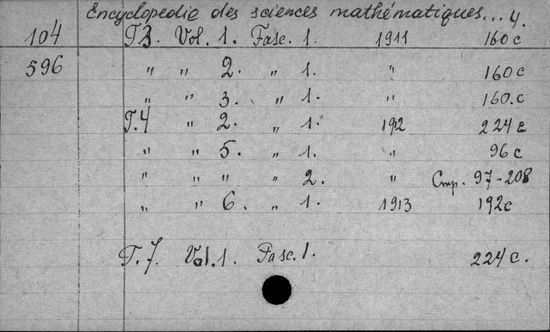 Encyclopedie des sciences mathématiques... 4.
104 T.3. Vol. 1. Fasc. 1. 1911 160 c
596 " " 2. " 1. " 160 c
" " 3. " 1. " 160.c
T.4 " 2. " 1. 1912 224 c
" " 5. " 1. " 96 c
" " " " 2. " Стр. 97-208
" " 6. " 1. 1913 192 c
T.7. Vol. 1. Fasc. 1. 224 c.